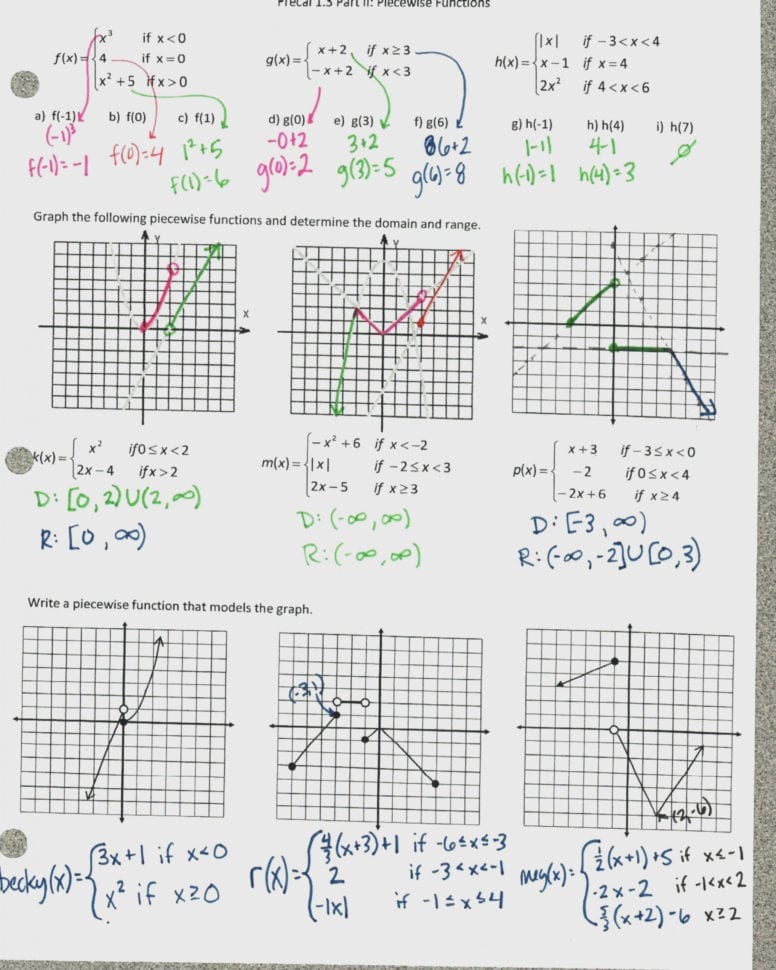 Precal 1.3 Part II: Piecewise Functions
f(x) = { x³ if x < 0
4 if x = 0
x² + 5 if x > 0
g(x) = { x + 2 if x ≥ 3
− x + 2 if x < 3
h(x) = { |x| if − 3 < x < 4
x − 1 if x = 4
2x² if 4 < x < 6
a) f(-1) b) f(0) c) f(1) d) g(0) e) g(3) f) g(6) g) h(-1) h) h(4) i) h(7)
(-1)³
f(-1) = -1
f(0) = 4
1² + 5
f(1) = 6
-0+2
g(0) = 2
3+2
g(3) = 5
6+2
g(6) = 8
|-1|
h(-1) = 1
4-1
h(4) = 3
∅
Graph the following piecewise functions and determine the domain and range.
Y
X
Y
X
k(x) = { x² if 0 ≤ x < 2
2x − 4 if x > 2
D: [0, 2) U (2, ∞)
R: [0, ∞)
m(x) = { − x² + 6 if x < −2
|x| if − 2 ≤ x < 3
2x − 5 if x ≥ 3
D: (-∞, ∞)
R: (-∞, ∞)
p(x) = { x + 3 if − 3 ≤ x < 0
− 2 if 0 ≤ x < 4
− 2x + 6 if x ≥ 4
D: [-3, ∞)
R: (-∞, -2] U [0, 3)
Write a piecewise function that models the graph.
(-3,1)
(2,-6)
becky(x) = { 3x+1 if x<0
x² if x≥0
r(x) = { 4/3 (x+3)+1 if -6≤x≤-3
2 if -3<x<-1
-|x| if -1≤x≤4
meg(x) = { 1/2 (x+1)+5 if x≤-1
-2x-2 if -1<x<2
5/3 (x+2)-6 x≥2